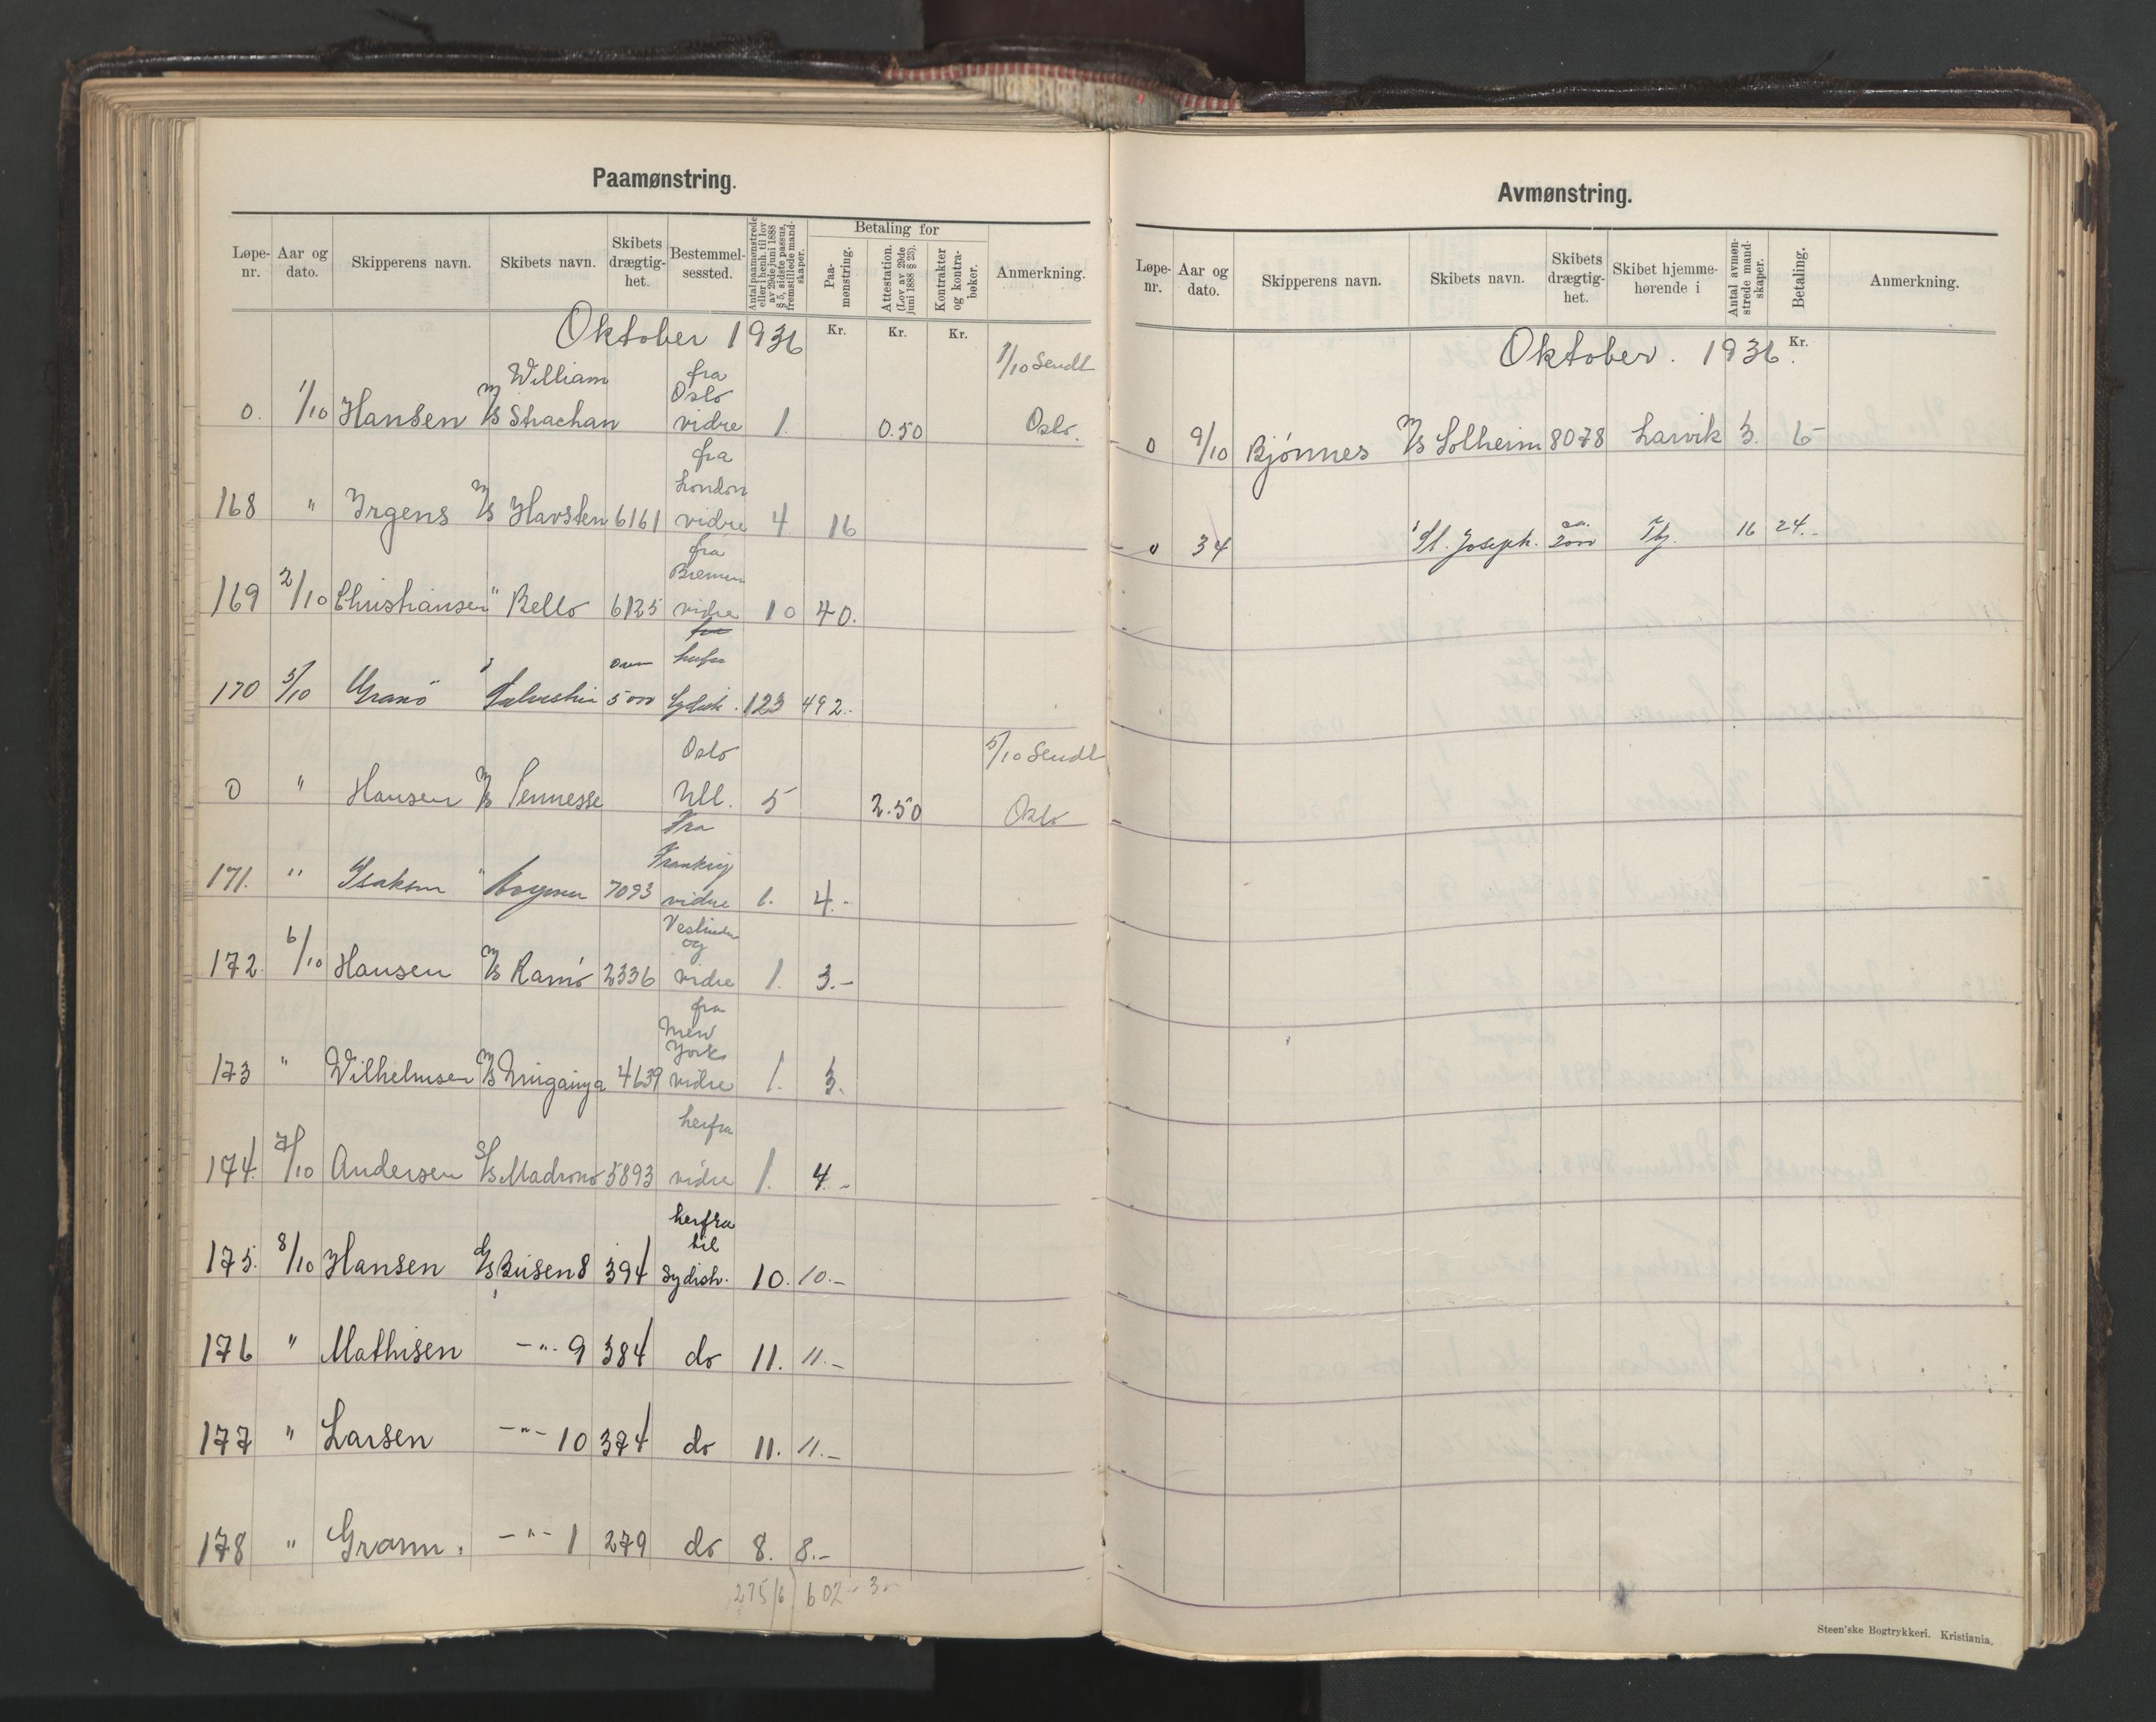 Paamønstring.
Løpe-nr. Aar og dato. Skipperens navn. Skibets navn. Skibets drægtig-het. Bestemmel-sessted. Antal paamønstrede eller i henh. til lov av 29de juni 1888 § 5, sidste passus, fremstillede mand-skaper. Betaling for Paa-mønstring. Attestation. (Lov av 29de juni 1888 § 23). Kontrakter og kontra-bøker. Anmerkning.
Oktober 1936 Kr. Kr. Kr.
William fra Oslo 1/10 Sendt
0. 1/10 Hansen M/S Strachan vidre 1. 0.50 Oslo.
fra London
168 " Irgens M/S Havsten 6161 vidre 4 16
fra Bremen
169 2/10 Christiansen " Bello 6125 vidre 10 40.
170 5/10 5000 123 492.-
Oslo 5/10 Sendt
0 " Hansen M/S Tennesse Ull. 5 2.50 Oslo
Fra Frankrig
171. " Isaksen " 7093 vidre 1. 4.-
og
172. 6/10 Hansen M/S Ramö 2336 vidre 1. 3.-
fra New York
173 " Wilhelmsen M/S 4639 vidre 1. 3.
herfra
174. 7/10 Andersen S/S Madrono 5893 vidre 1. 4.-
herfra til
175. 8/10 Hansen d/s Busen 8 394 Sydish. 10. 10.-
176 " Mathisen -"- 9 384 do 11. 11.-
177 " Larsen -"- 10 374 do 11. 11.-
178 " Gramm. -"- 1 279 do 8. 8.-
275/6 602 - 3 -
Avmønstring.
Løpe-nr. Aar og dato. Skipperens navn. Skibets navn. Skibets drægtig-het. Skibet hjemme-hørende i Antal avmøn-strede mand-skaper. Betaling. Anmerkning.
Oktober. 1936. Kr.
0 9/10 Bjönnes M/S Solheim 8078 Larvik 3. 6-
0 34 St. Joseph. ca. 2000 Tbg. 16 24.-
Steen'ske Bogtrykkeri. Kristiania.